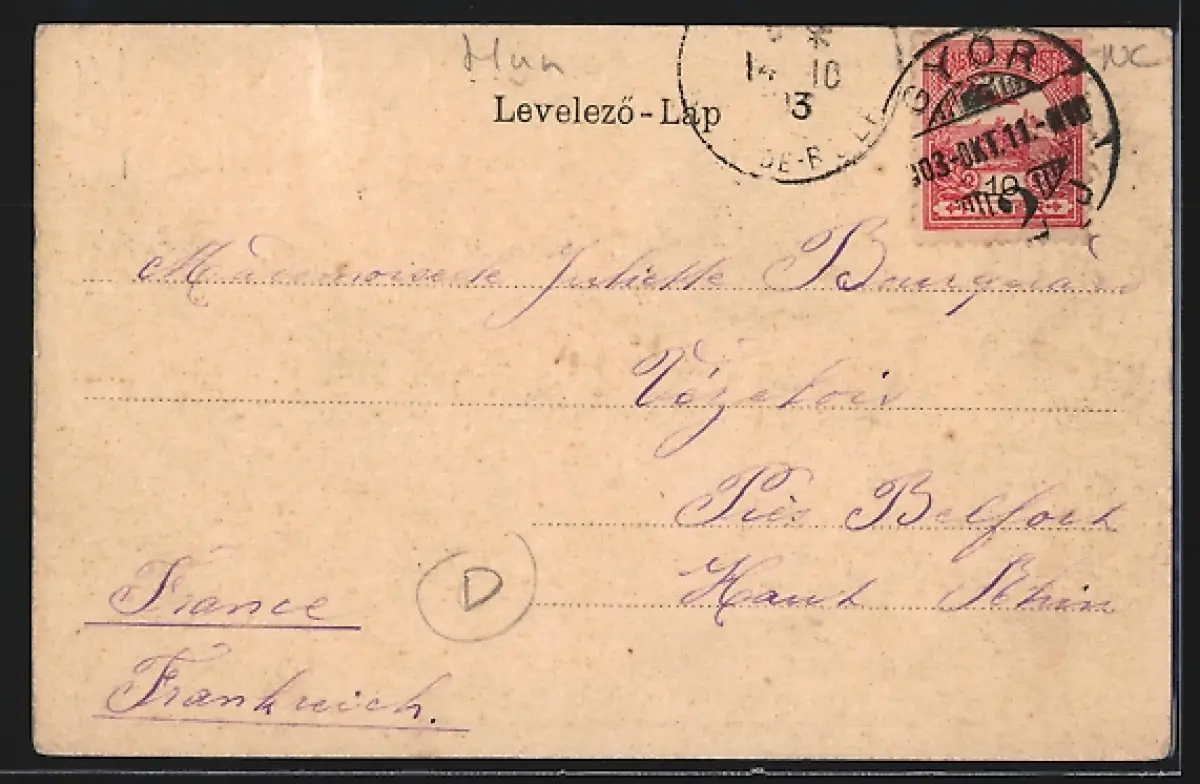 Hun
NC
14 10
3
Levelező-Lap
GYŐR
903-OKT.11.
10
Mademoiselle Juliette Bourquard
Vézelois
Près Belfort
Haut Rhin
France
D
Frankreich.